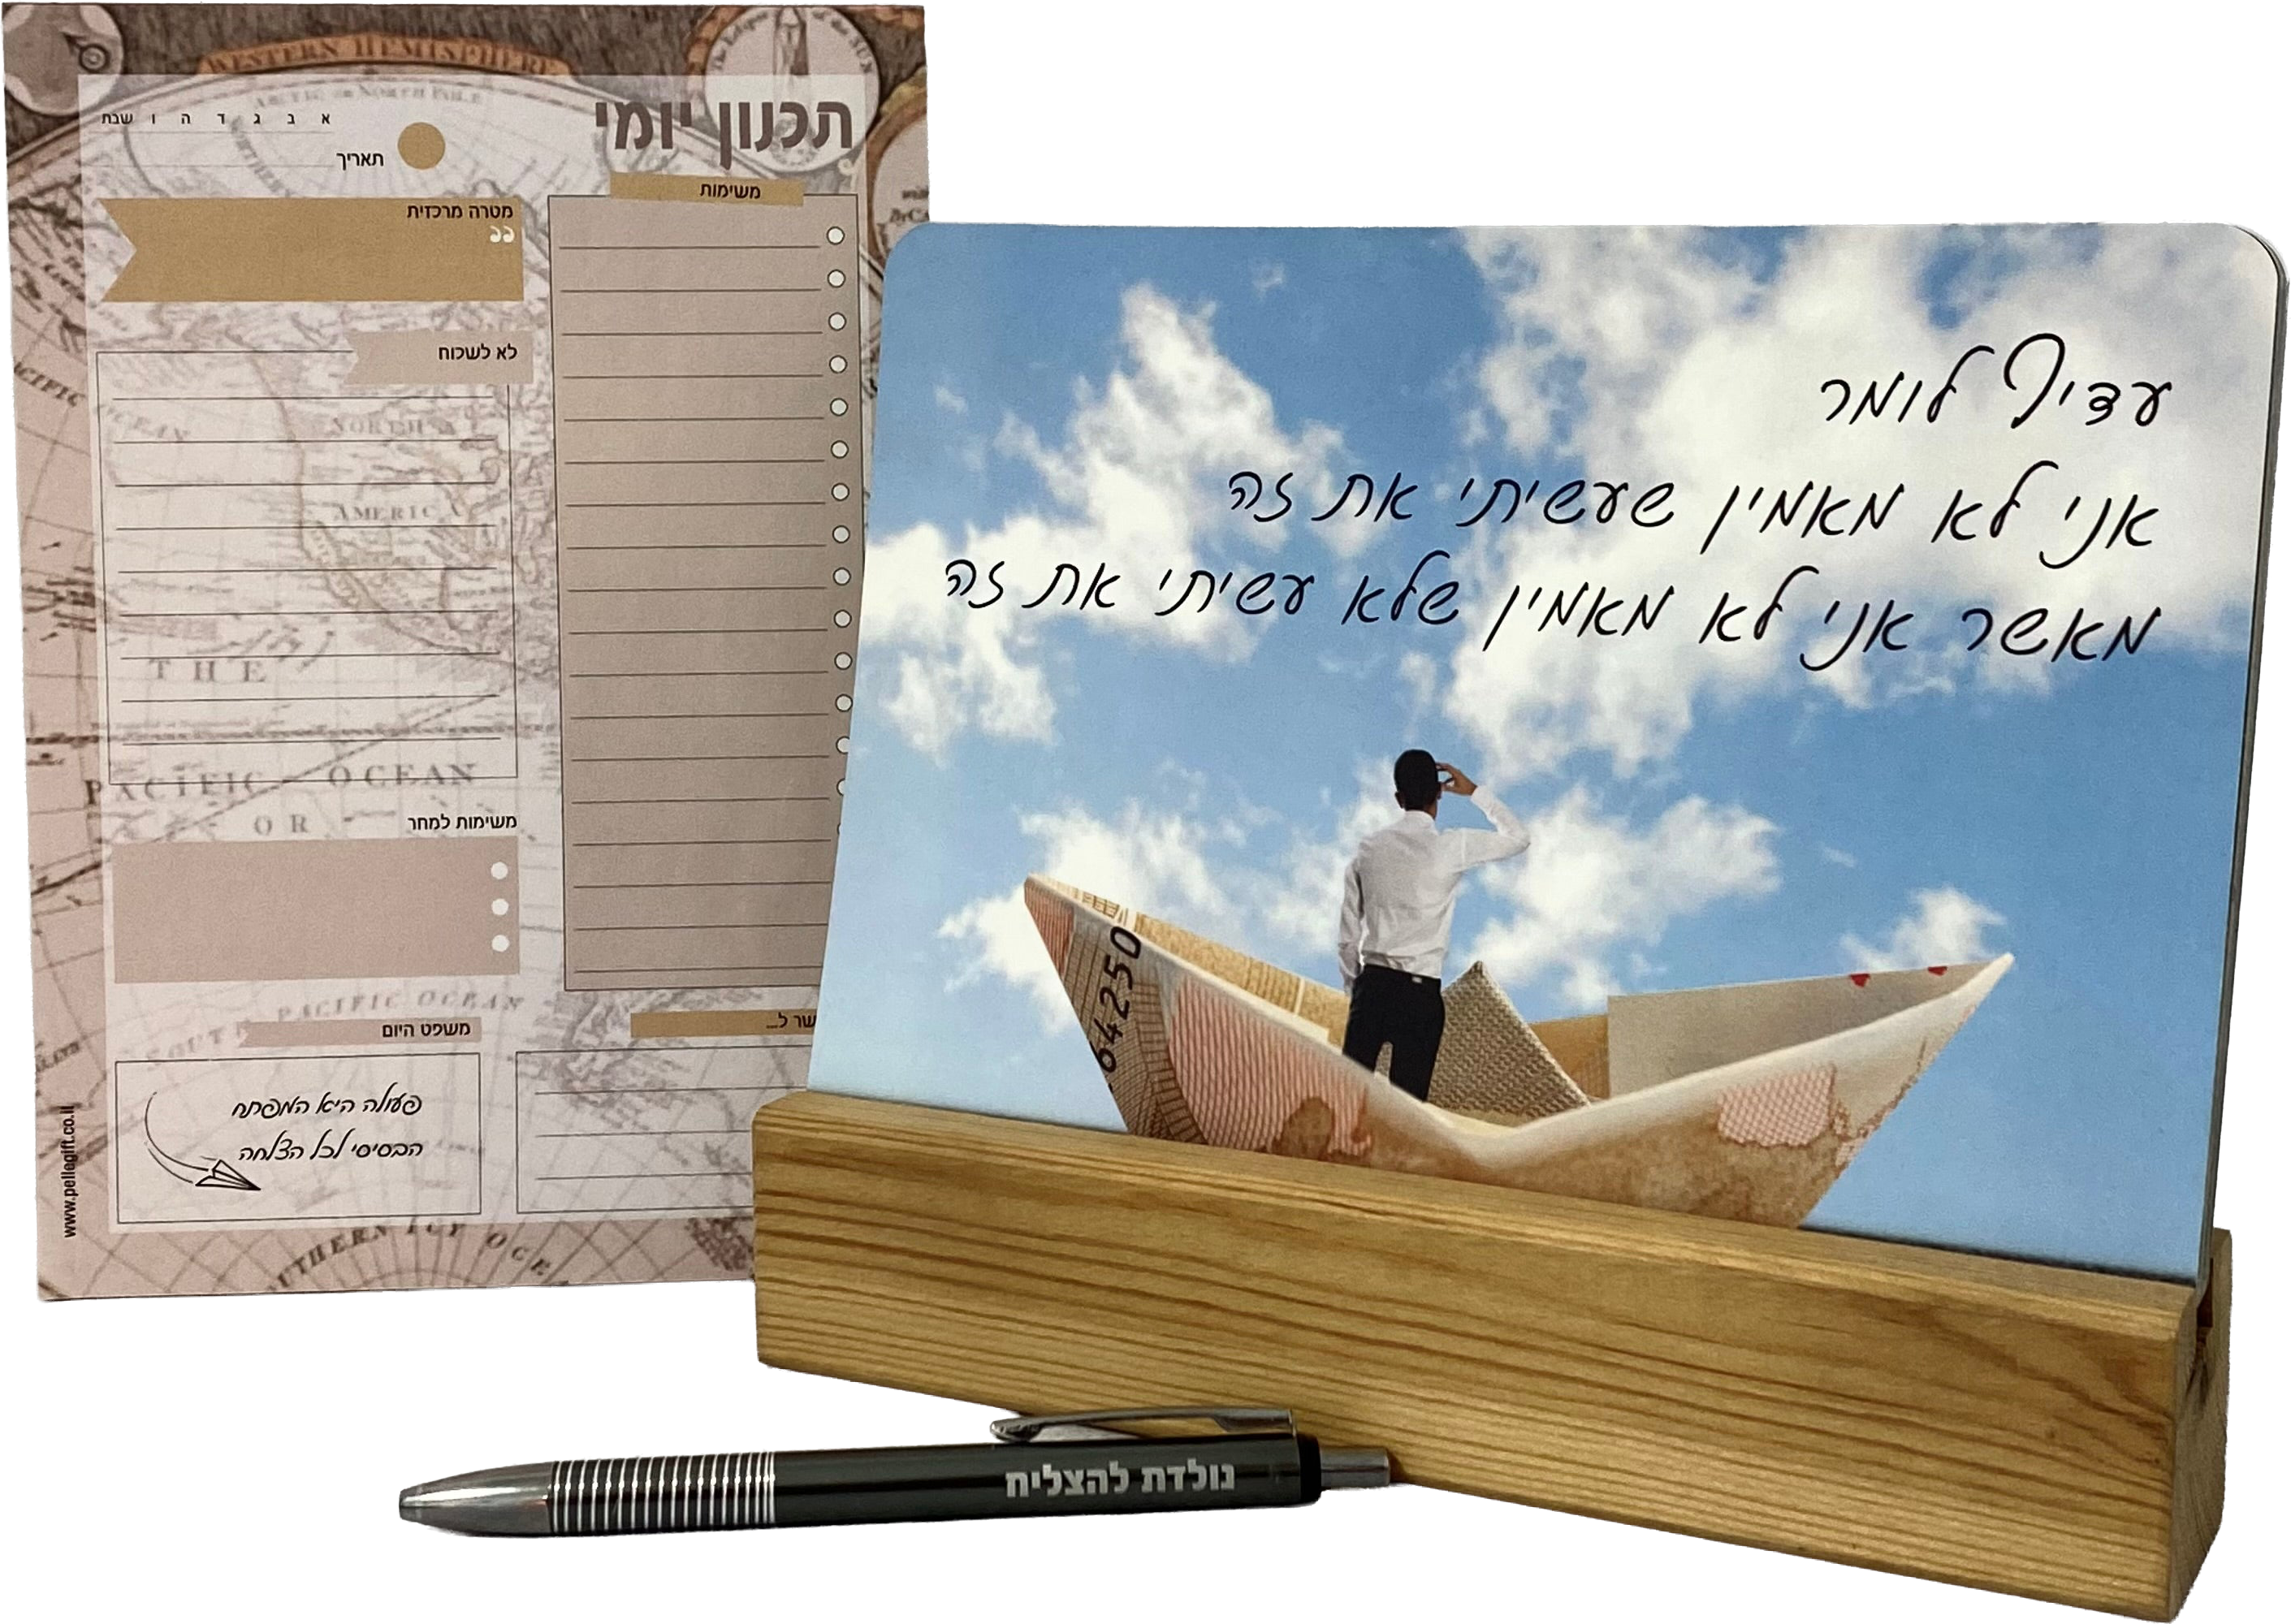 WESTERN HEMISPHERE
ARCTIC or NORTH POLE
תכנון יומי
א ב ג ד ה ו שבת
תאריך
משימות
מטרה מרכזית
לא לשכוח
NORTH
AMERICA
THE
PACIFIC OCEAN
OR
משימות למחר
PACIFIC OCEAN
משפט היום
פעולה היא המפתח
הבסיסי לכל הצלחה
www.pellegift.co.il
עדיף לומר
אני לא מאמין שעשיתי את זה
מאשר אני לא מאמין שלא עשיתי את זה
64250
נולדת להצליח